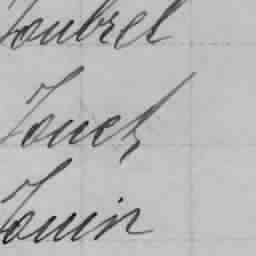 Joubrel
Jouet
Jouin